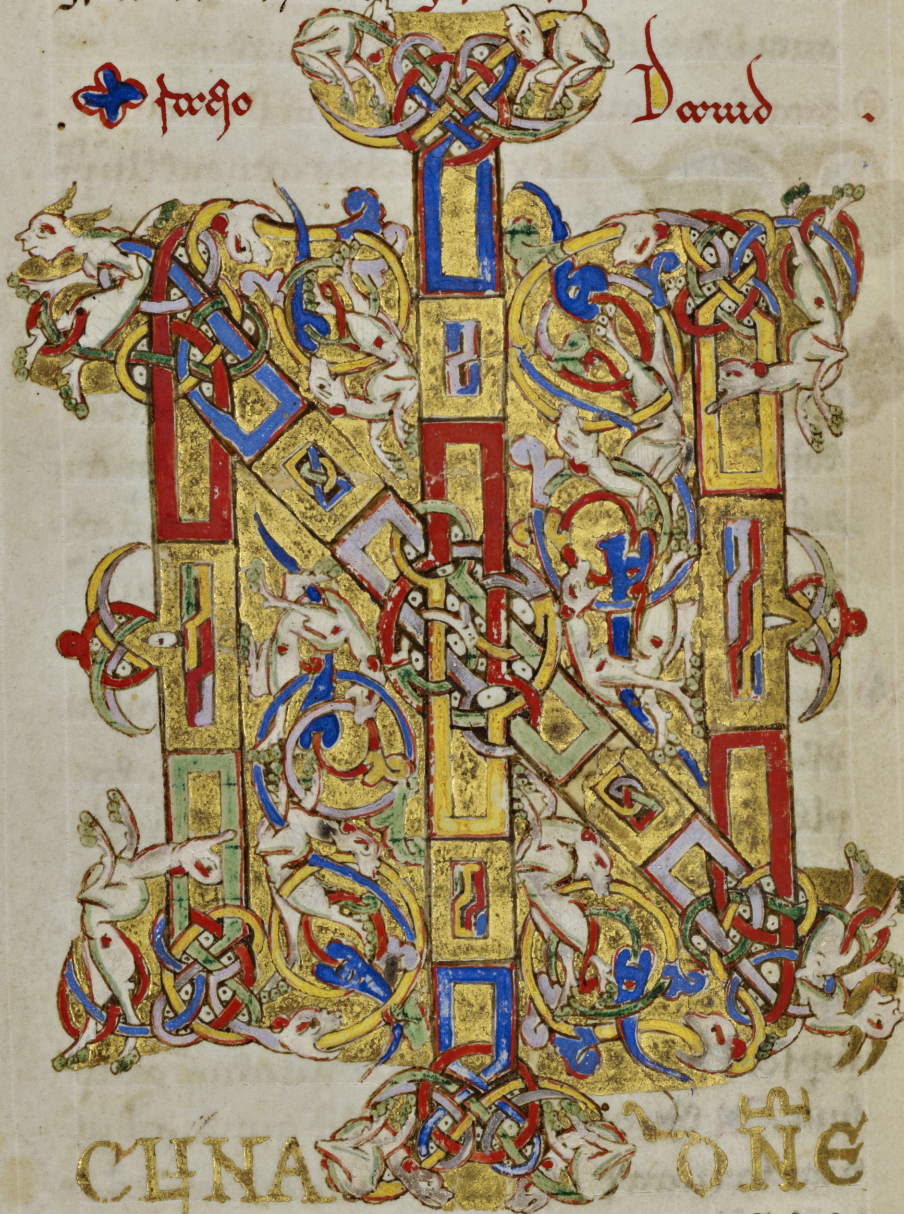 Oratio Dauid
IN
CLINA DOMINE